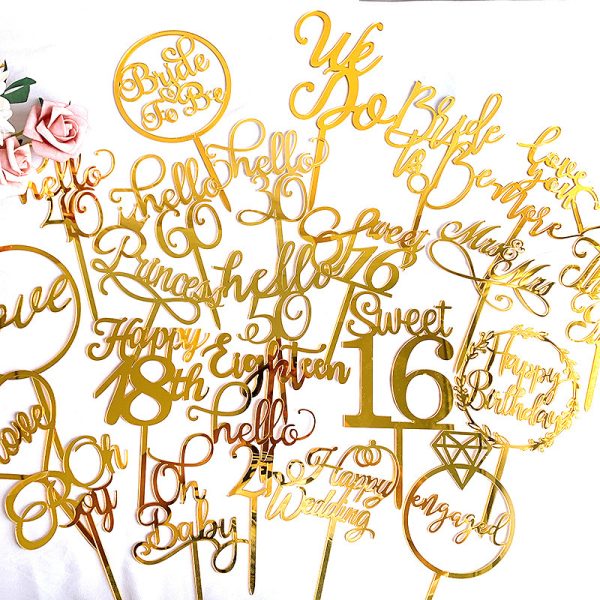 Bride
To Be
We
Do
Bride
to Be
love
you
more
hello
40
hello
60
hello
30
Princess
hello
50
Sweet
16
Mr &
Mrs
love
Happy
18th
Eighteen
Sweet
16
Happy
Birthday
love
Oh
Boy
Oh
Baby
hello
Happy
Wedding
engaged